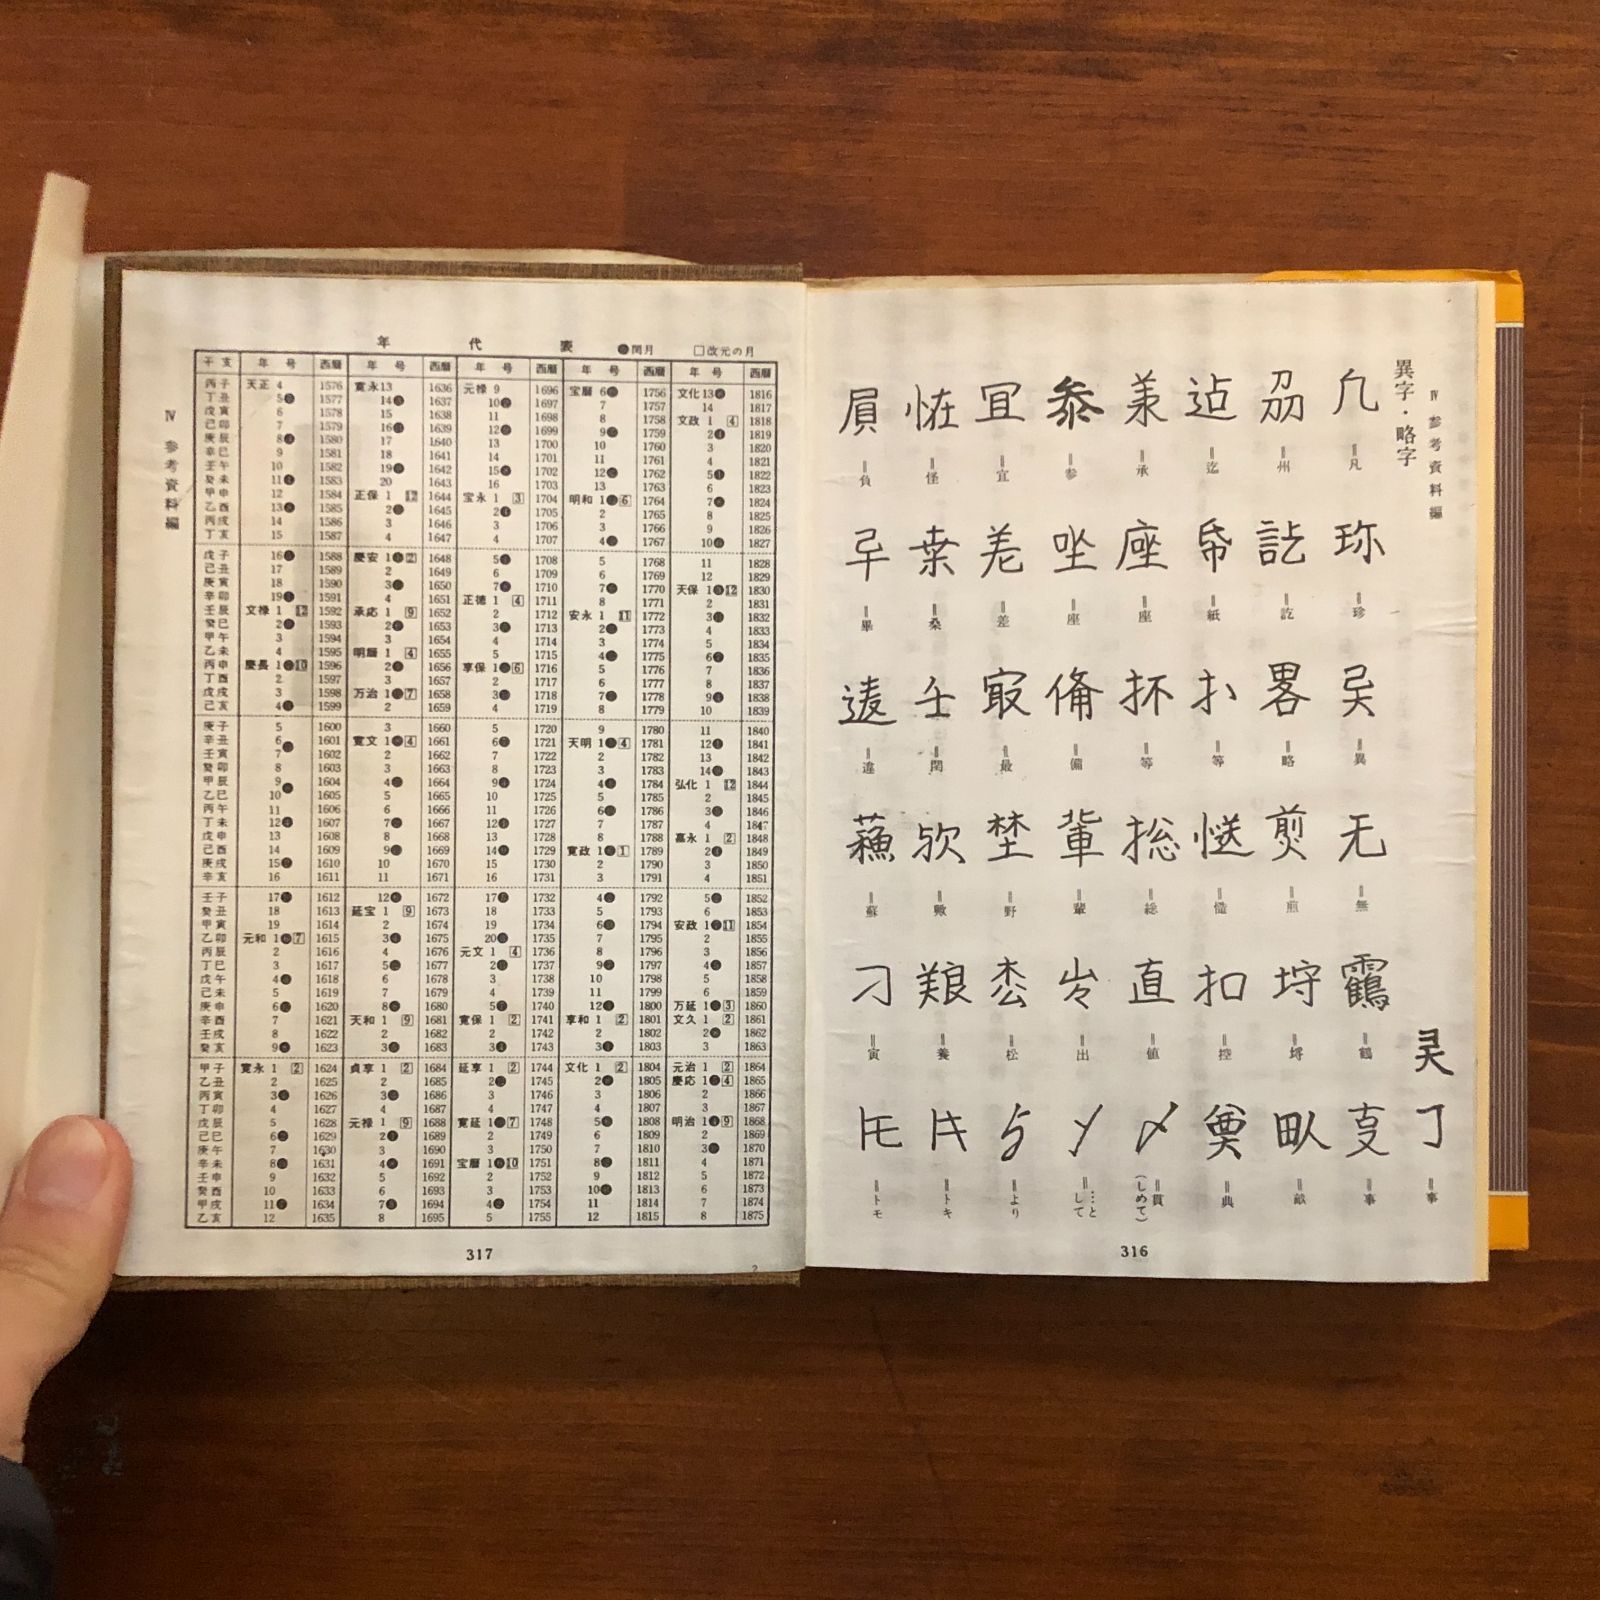 Ⅳ 参考資料編
異字・略字
丁=事
凢=凡 珎=珍 =異 无=無 靍=鶴 叓=事
刕=州 訖=訖 畧=略 煎=煎 =埒 畆=畝
迠=迄 帋=紙 扌=等 慥=慥 扣=控 =典
羕=承 座=座 抔=等 捴=総 直=値 〆=貫(しめて)
叅=参 坐=座 俻=備 軰=輩 =出 =…として
冝=宜 差=差 冣=最 埜=野 枩=松 ゟ=より
恠=怪 桒=桑 壬=閏 欤=歟 =養 =トキ
屓=負 =畢 =違 蘓=蘇 刁=寅 =トモ
316
Ⅳ 参考資料編
年代表 ●閏月 □改元の月
干支 年号 西暦 年号 西暦 年号 西暦 年号 西暦 年号 西暦
丙子 天正 4 1576 寛永13 1636 元禄 9 1696 宝暦 6 1756 文化13 1816
丁丑 5 1577 14 1637 10 1697 7 1757 14 1817
戊寅 6 1578 15 1638 11 1698 8 1758 文政 1 4 1818
己卯 7 1579 16 1639 12 1699 9 1759 2 1819
庚辰 8 1580 17 1640 13 1700 10 1760 3 1820
辛巳 9 1581 18 1641 14 1701 11 1761 4 1821
壬午 10 1582 19 1642 15 1702 12 1762 5 1822
癸未 11 1583 20 1643 16 1703 13 1763 6 1823
甲申 12 1584 正保 1 12 1644 宝永 1 3 1704 明和 1 6 1764 7 1824
乙酉 13 1585 2 1645 2 1705 2 1765 8 1825
丙戌 14 1586 3 1646 3 1706 3 1766 9 1826
丁亥 15 1587 4 1647 4 1707 4 1767 10 1827
戊子 16 1588 慶安 1 2 1648 5 1708 5 1768 11 1828
己丑 17 1589 2 1649 6 1709 6 1769 12 1829
庚寅 18 1590 3 1650 7 1710 7 1770 天保 1 12 1830
辛卯 19 1591 4 1651 正徳 1 4 1711 8 1771 2 1831
壬辰 文禄 1 12 1592 承応 1 9 1652 2 1712 安永 1 11 1772 3 1832
癸巳 2 1593 2 1653 3 1713 2 1773 4 1833
甲午 3 1594 3 1654 4 1714 3 1774 5 1834
乙未 4 1595 明暦 1 4 1655 5 1715 4 1775 6 1835
丙申 慶長 1 10 1596 2 1656 享保 1 6 1716 5 1776 7 1836
丁酉 2 1597 3 1657 2 1717 6 1777 8 1837
戊戌 3 1598 万治 1 7 1658 3 1718 7 1778 9 1838
己亥 4 1599 2 1659 4 1719 8 1779 10 1839
庚子 5 1600 3 1660 5 1720 9 1780 11 1840
辛丑 6 1601 寛文 1 4 1661 6 1721 天明 1 4 1781 12 1841
壬寅 7 1602 2 1662 7 1722 2 1782 13 1842
癸卯 8 1603 3 1663 8 1723 3 1783 14 1843
甲辰 9 1604 4 1664 9 1724 4 1784 弘化 1 12 1844
乙巳 10 1605 5 1665 10 1725 5 1785 2 1845
丙午 11 1606 6 1666 11 1726 6 1786 3 1846
丁未 12 1607 7 1667 12 1727 7 1787 4 1847
戊申 13 1608 8 1668 13 1728 8 1788 嘉永 1 2 1848
己酉 14 1609 9 1669 14 1729 寛政 1 1 1789 2 1849
庚戌 15 1610 10 1670 15 1730 2 1790 3 1850
辛亥 16 1611 11 1671 16 1731 3 1791 4 1851
壬子 17 1612 12 1672 17 1732 4 1792 5 1852
癸丑 18 1613 延宝 1 9 1673 18 1733 5 1793 6 1853
甲寅 19 1614 2 1674 19 1734 6 1794 安政 1 11 1854
乙卯 元和 1 7 1615 3 1675 20 1735 7 1795 2 1855
丙辰 2 1616 4 1676 元文 1 4 1736 8 1796 3 1856
丁巳 3 1617 5 1677 2 1737 9 1797 4 1857
戊午 4 1618 6 1678 3 1738 10 1798 5 1858
己未 5 1619 7 1679 4 1739 11 1799 6 1859
庚申 6 1620 8 1680 5 1740 12 1800 万延 1 3 1860
辛酉 7 1621 天和 1 9 1681 寛保 1 2 1741 享和 1 2 1801 文久 1 2 1861
壬戌 8 1622 2 1682 2 1742 2 1802 2 1862
癸亥 9 1623 3 1683 3 1743 3 1803 3 1863
甲子 寛永 1 2 1624 貞享 1 2 1684 延享 1 2 1744 文化 1 2 1804 元治 1 2 1864
乙丑 2 1625 2 1685 2 1745 2 1805 慶応 1 4 1865
丙寅 3 1626 3 1686 3 1746 3 1806 2 1866
丁卯 4 1627 4 1687 4 1747 4 1807 3 1867
戊辰 5 1628 元禄 1 9 1688 寛延 1 7 1748 5 1808 明治 1 9 1868
己巳 6 1629 2 1689 2 1749 6 1809 2 1869
庚午 7 1630 3 1690 3 1750 7 1810 3 1870
辛未 8 1631 4 1691 宝暦 1 10 1751 8 1811 4 1871
壬申 9 1632 5 1692 2 1752 9 1812 5 1872
癸酉 10 1633 6 1693 3 1753 10 1813 6 1873
甲戌 11 1634 7 1694 4 1754 11 1814 7 1874
乙亥 12 1635 8 1695 5 1755 12 1815 8 1875
317